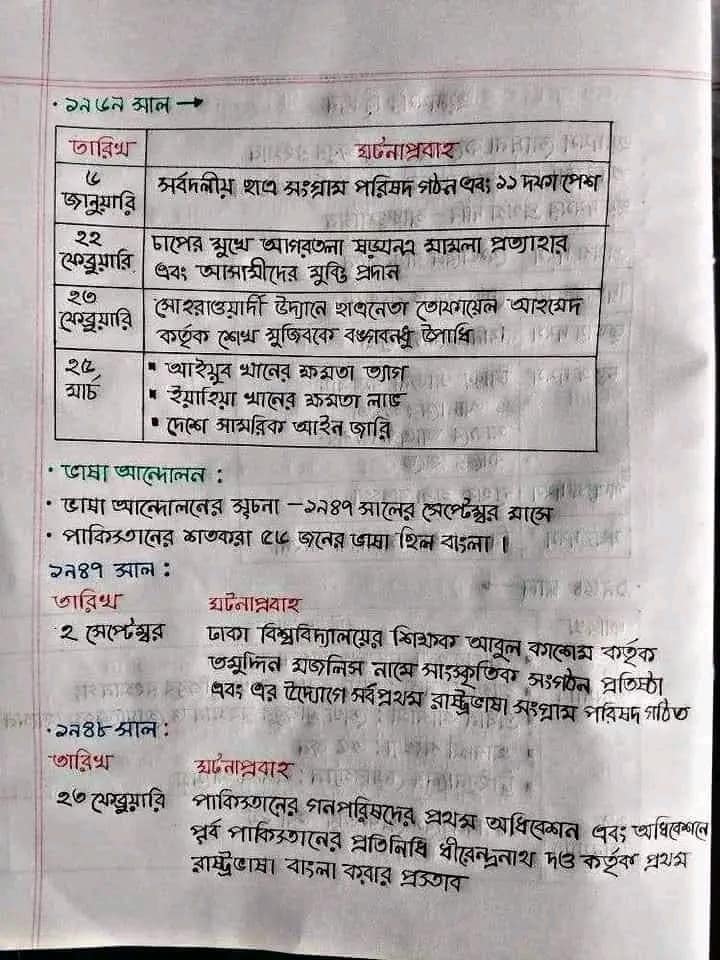 • ১৯৬৯ সাল →
তারিখ ঘটনাপ্রবাহ
৫ সর্বদলীয় ছাত্র সংগ্রাম পরিষদ গঠন এবং ১১ দফা পেশ
জানুয়ারি
২২ চাপের মুখে আগরতলা ষড়যন্ত্র মামলা প্রত্যাহার
ফেব্রুয়ারি এবং আসামীদের মুক্তি প্রদান
২৩ সোহরাওয়ার্দী উদ্যানে ছাত্রনেতা তোফায়েল আহমেদ
ফেব্রুয়ারি কর্তৃক শেখ মুজিবকে বঙ্গবন্ধু উপাধি ।
২৫ ▪ আইয়ুব খানের ক্ষমতা ত্যাগ
মার্চ ▪ ইয়াহিয়া খানের ক্ষমতা লাভ
▪ দেশে সামরিক আইন জারি
• ভাষা আন্দোলন :
• ভাষা আন্দোলনের সূচনা – ১৯৪৭ সালের সেপ্টেম্বর মাসে
• পাকিস্তানের শতকরা ৫৬ জনের ভাষা ছিল বাংলা ।
১৯৪৭ সাল :
তারিখ ঘটনাপ্রবাহ
২ সেপ্টেম্বর ঢাকা বিশ্ববিদ্যালয়ের শিক্ষক আবুল কাশেম কর্তৃক
তমুদ্দিন মজলিস নামে সাংস্কৃতিক সংগঠন প্রতিষ্ঠা
এবং এর উদ্যোগে সর্বপ্রথম রাষ্ট্রভাষা সংগ্রাম পরিষদ গঠিত
• ১৯৪৮ সাল :
তারিখ ঘটনাপ্রবাহ
২৩ ফেব্রুয়ারি পাকিস্তানের গনপরিষদের প্রথম অধিবেশন এবং অধিবেশনে
পূর্ব পাকিস্তানের প্রতিনিধি ধীরেন্দ্রনাথ দত্ত কর্তৃক প্রথম
রাষ্ট্রভাষা বাংলা করার প্রস্তাব